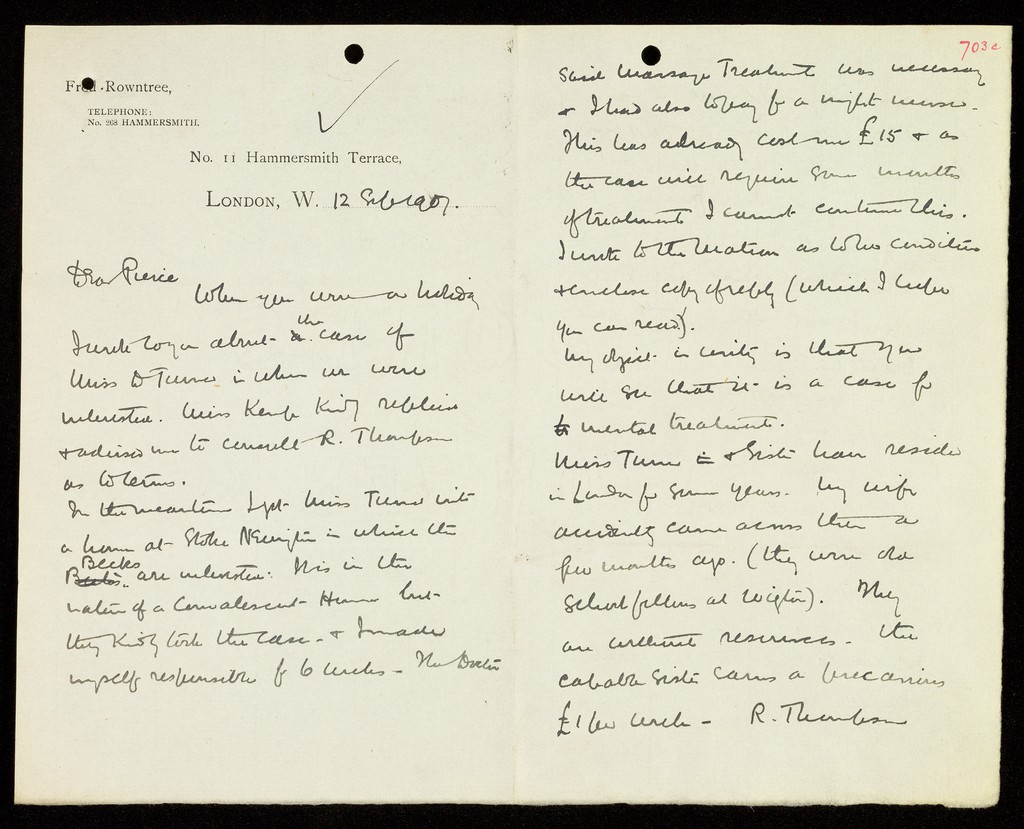 Fred Rowntree,
TELEPHONE:
No. 268 HAMMERSMITH.
No. 11 Hammersmith Terrace,
LONDON, W. 12 Sep 1907.
Dear Pierce
When you were on holiday
I wrote to you about the case of
Miss D Turner in whom we were
interested. Miss Kemp kindly replied
& advised me to consult R. Thompson
as to terms.
In the meantime I got Miss Turner into
a home at Stoke Newington in which the
Becks are interested. This is in the
nature of a Convalescent Home but
they kindly took the case - & I made
myself responsible for 6 weeks - The Doctor
703c
said massage treatment was necessary
& I had also to pay for a night nurse.
This has already cost me £15 & as
the case will require some months
of treatment I cannot continue this.
I wrote to the Matron as to her condition
& enclose copy of reply (which I hope
you can read).
My object in writing is that you
will see that it is a case for
mental treatment.
Miss Turner & Sister have resided
in London for some years. My wife
accidently came across them a
few months ago. (they were old
School fellows at Wigton). They
are without resources. The
capable sister earns a precarious
£1 per week - R. Thompson